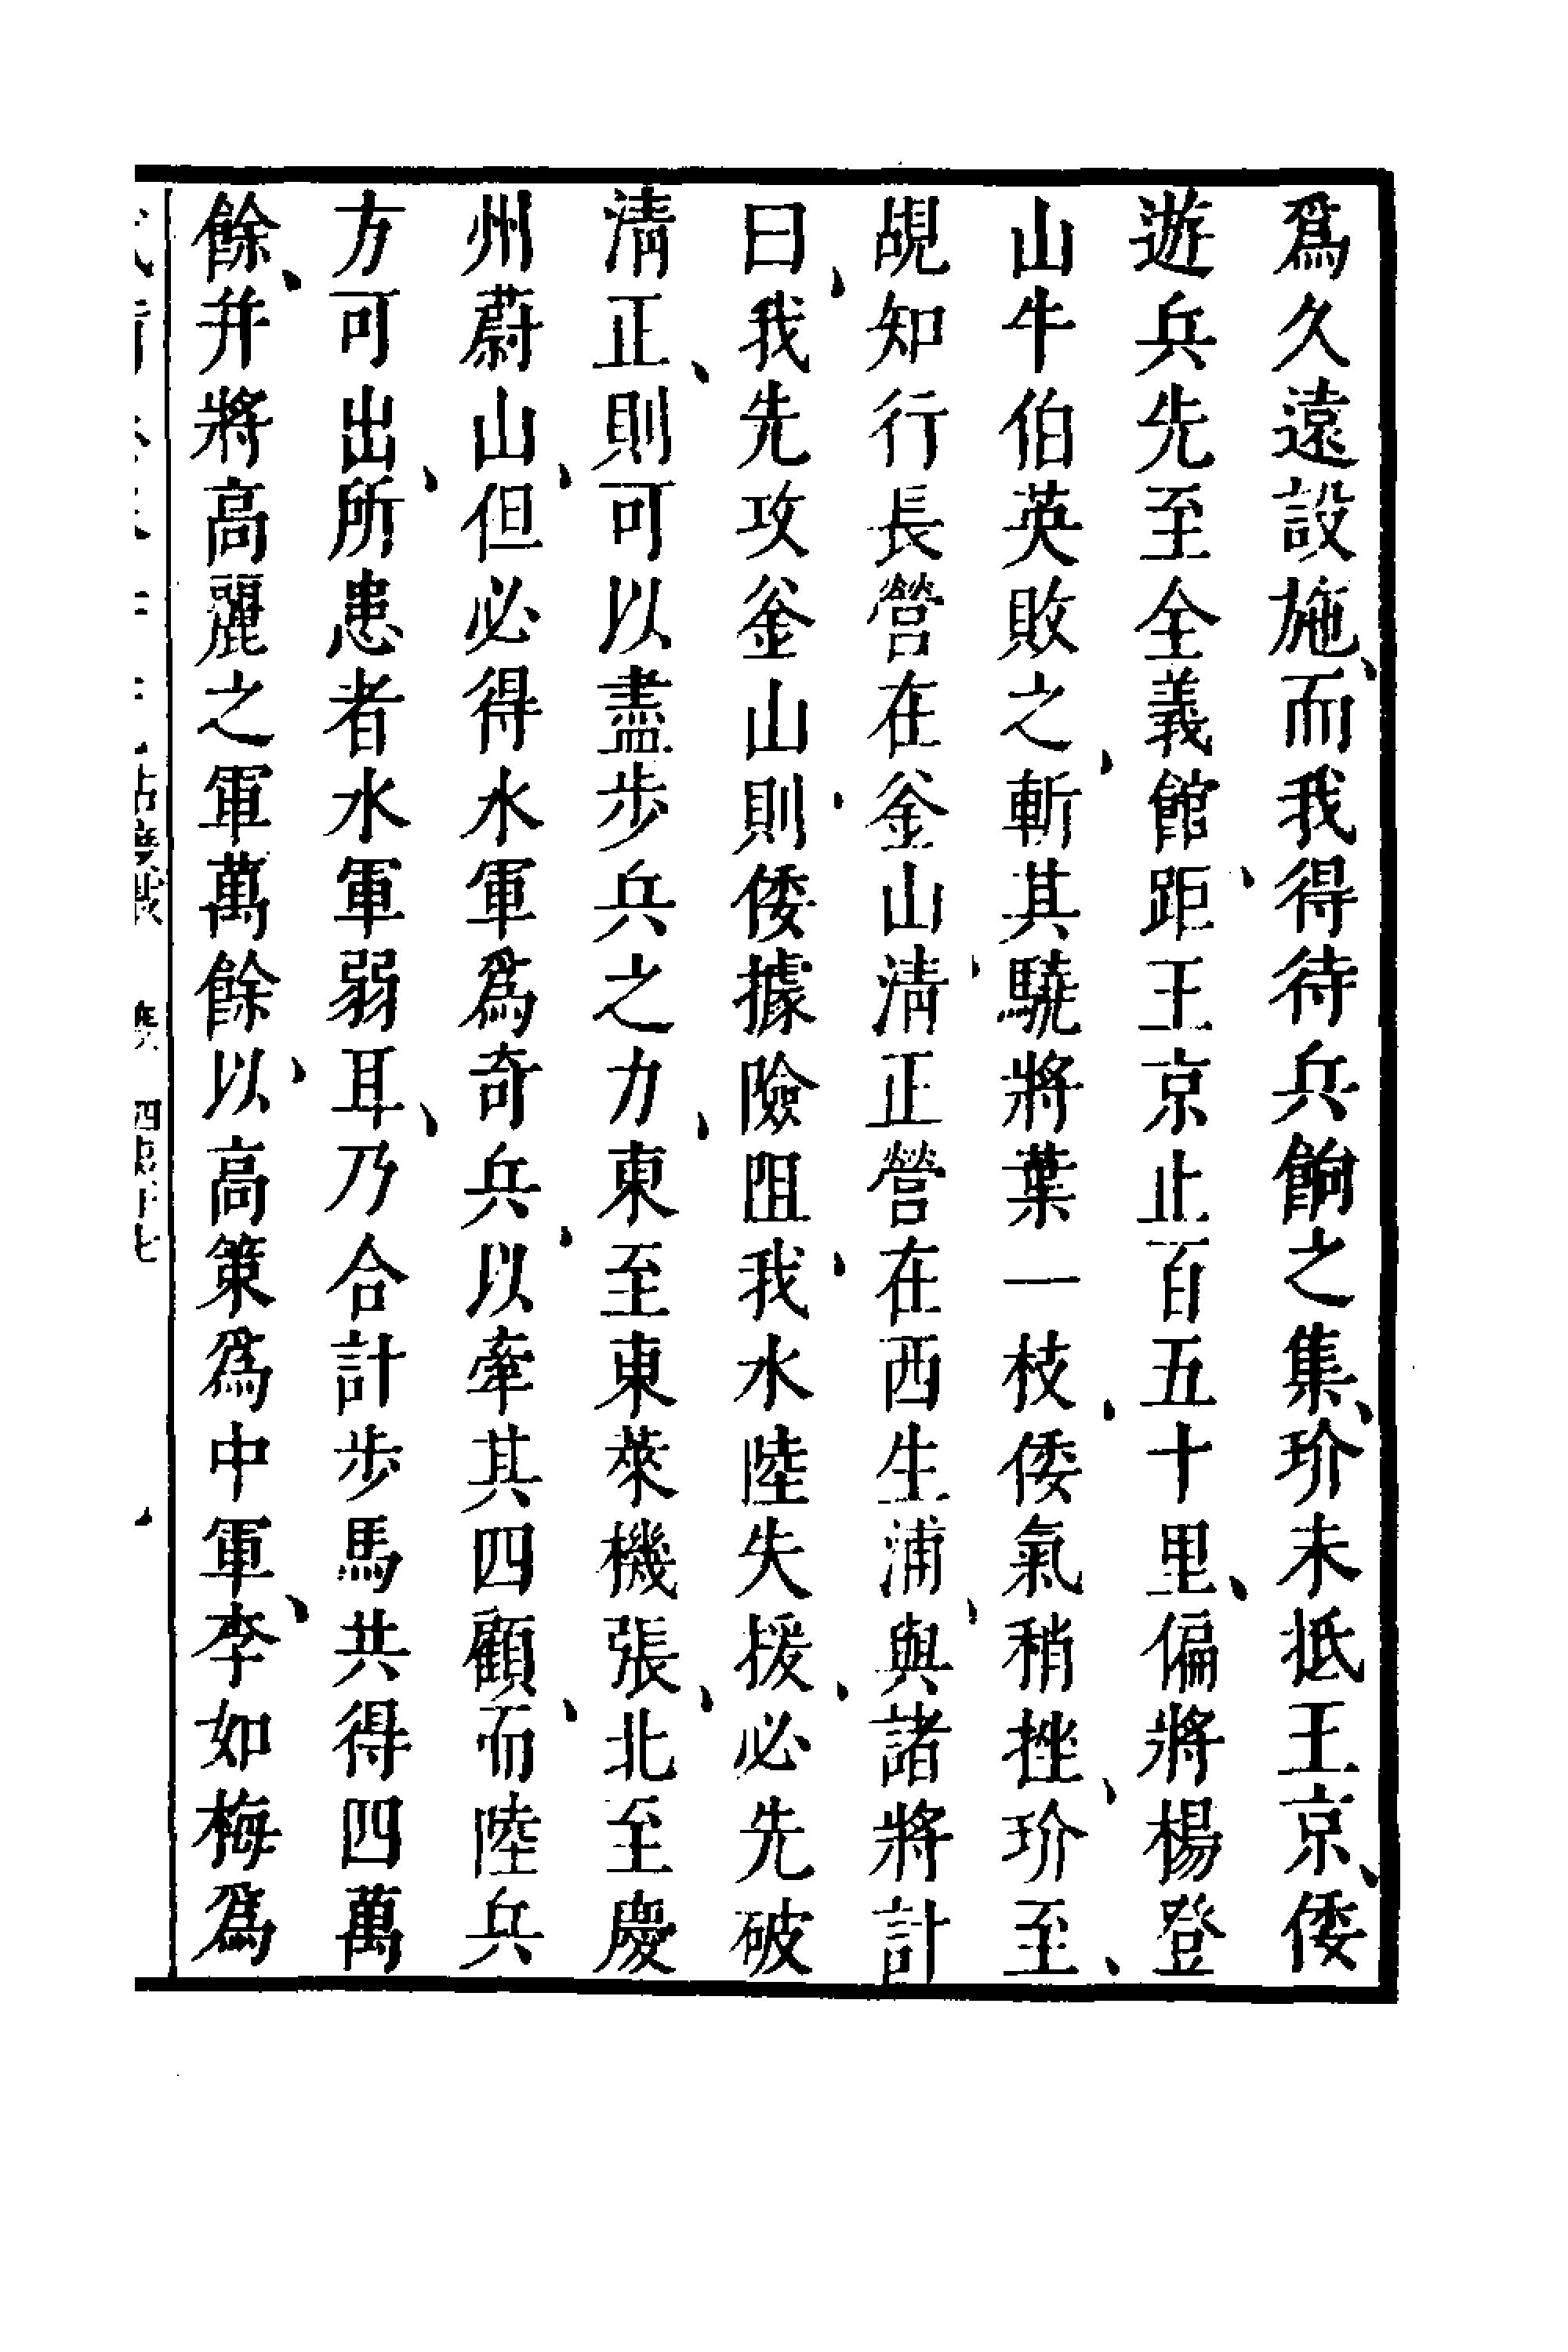 爲久遠設施、而我得待兵餉之集、玠未抵王京、倭
遊兵先至全義館、距王京止百五十里、偏將楊登
山牛伯英敗之、斬其驍將葉一枝、倭氣稍挫、玠至、
覘知行長營在釜山、清正營在西生浦、與諸將計
曰、我先攻釜山、則倭據險阻、我水陸失援、必先破
清正、則可以盡步兵之力、東至東萊機張、北至慶
州蔚山、但必得水軍爲奇兵、以牽其四顧、而陸兵
方可出、所患者水軍弱耳、乃合計步馬共得四萬
餘、并將高麗之軍萬餘、以高策爲中軍、李如梅爲
占度載 四